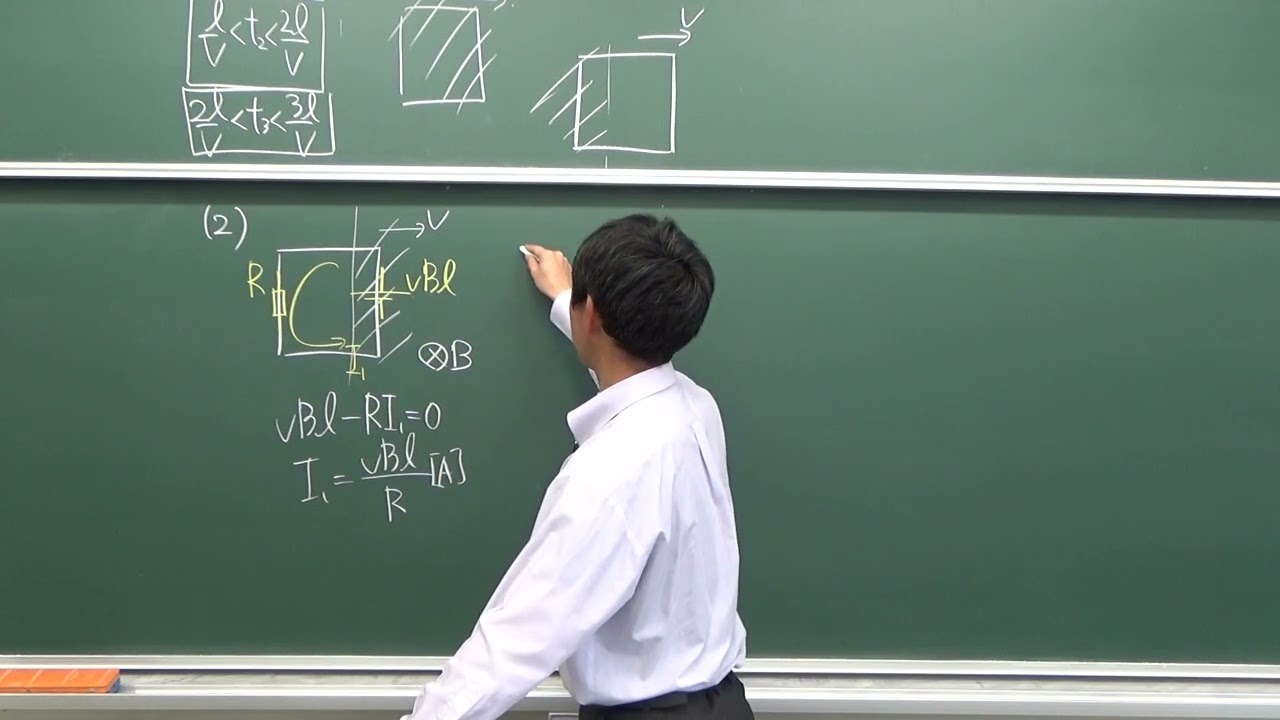 l/V<t₂<2l/V
2l/V<t₃<3l/V
V
(2)
V
R
vBl
I₁
⊗B
vBl-RI₁=0
I₁=vBl/R[A]